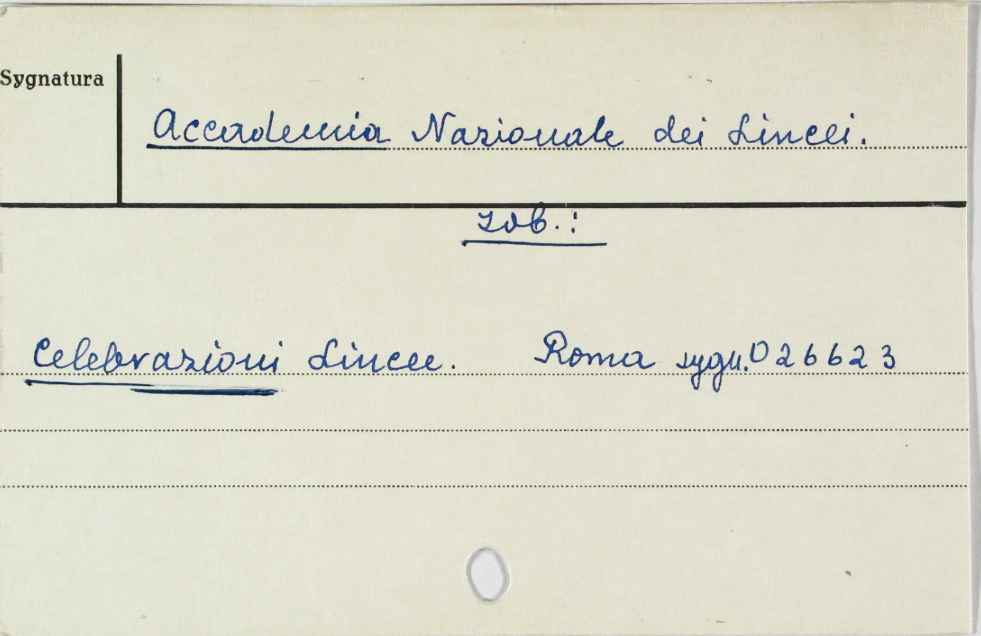 Sygnatura
Accademia Nazionale dei Lincei.
zob.:
Celebrazioni Lincee. Roma sygn. D 26623